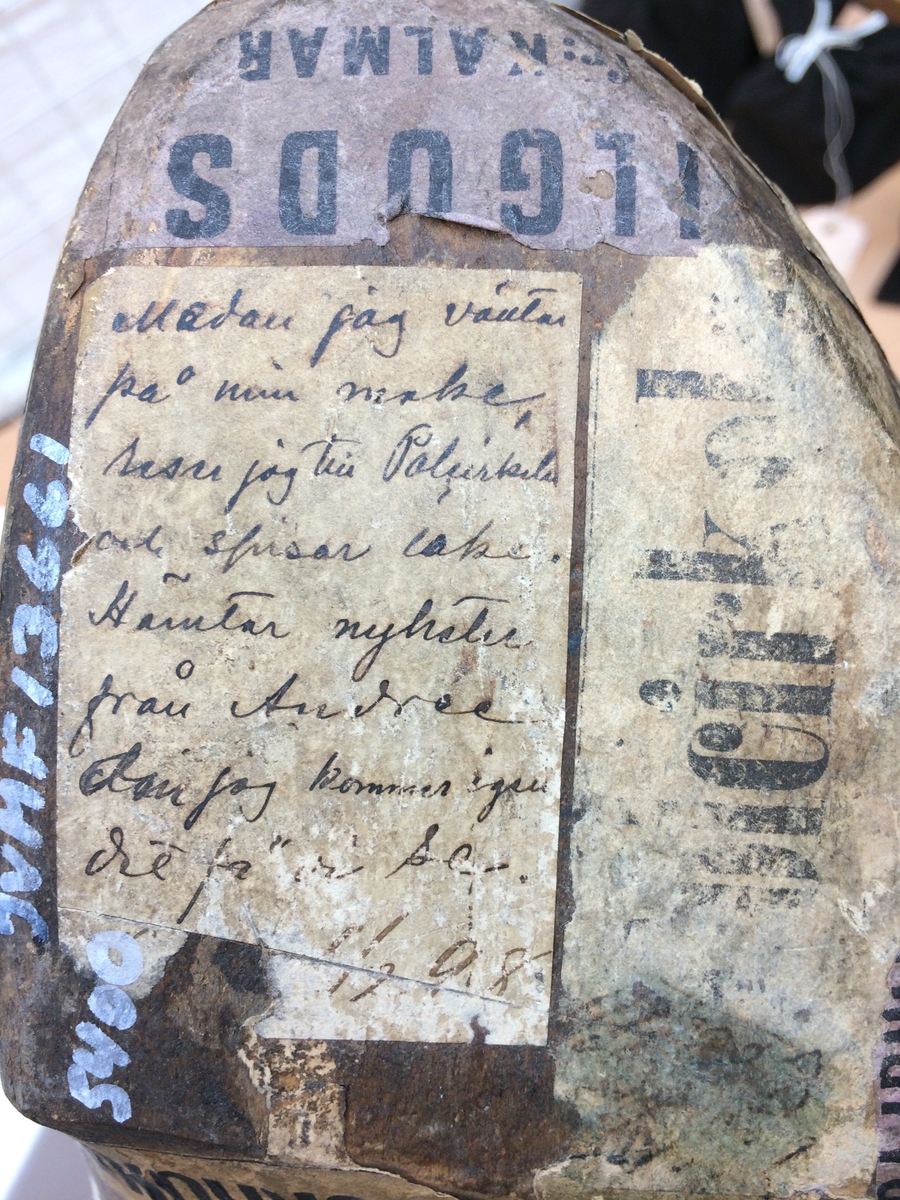 KALMAR
ILGODS
Medan jag väntar
på min make,
reser jag till Polcirkeln
och spisar lake.
Hämtar nyheter
från Andrée
När jag kommer igen
det få vi se.
1/7 98
JVMF13661
5400